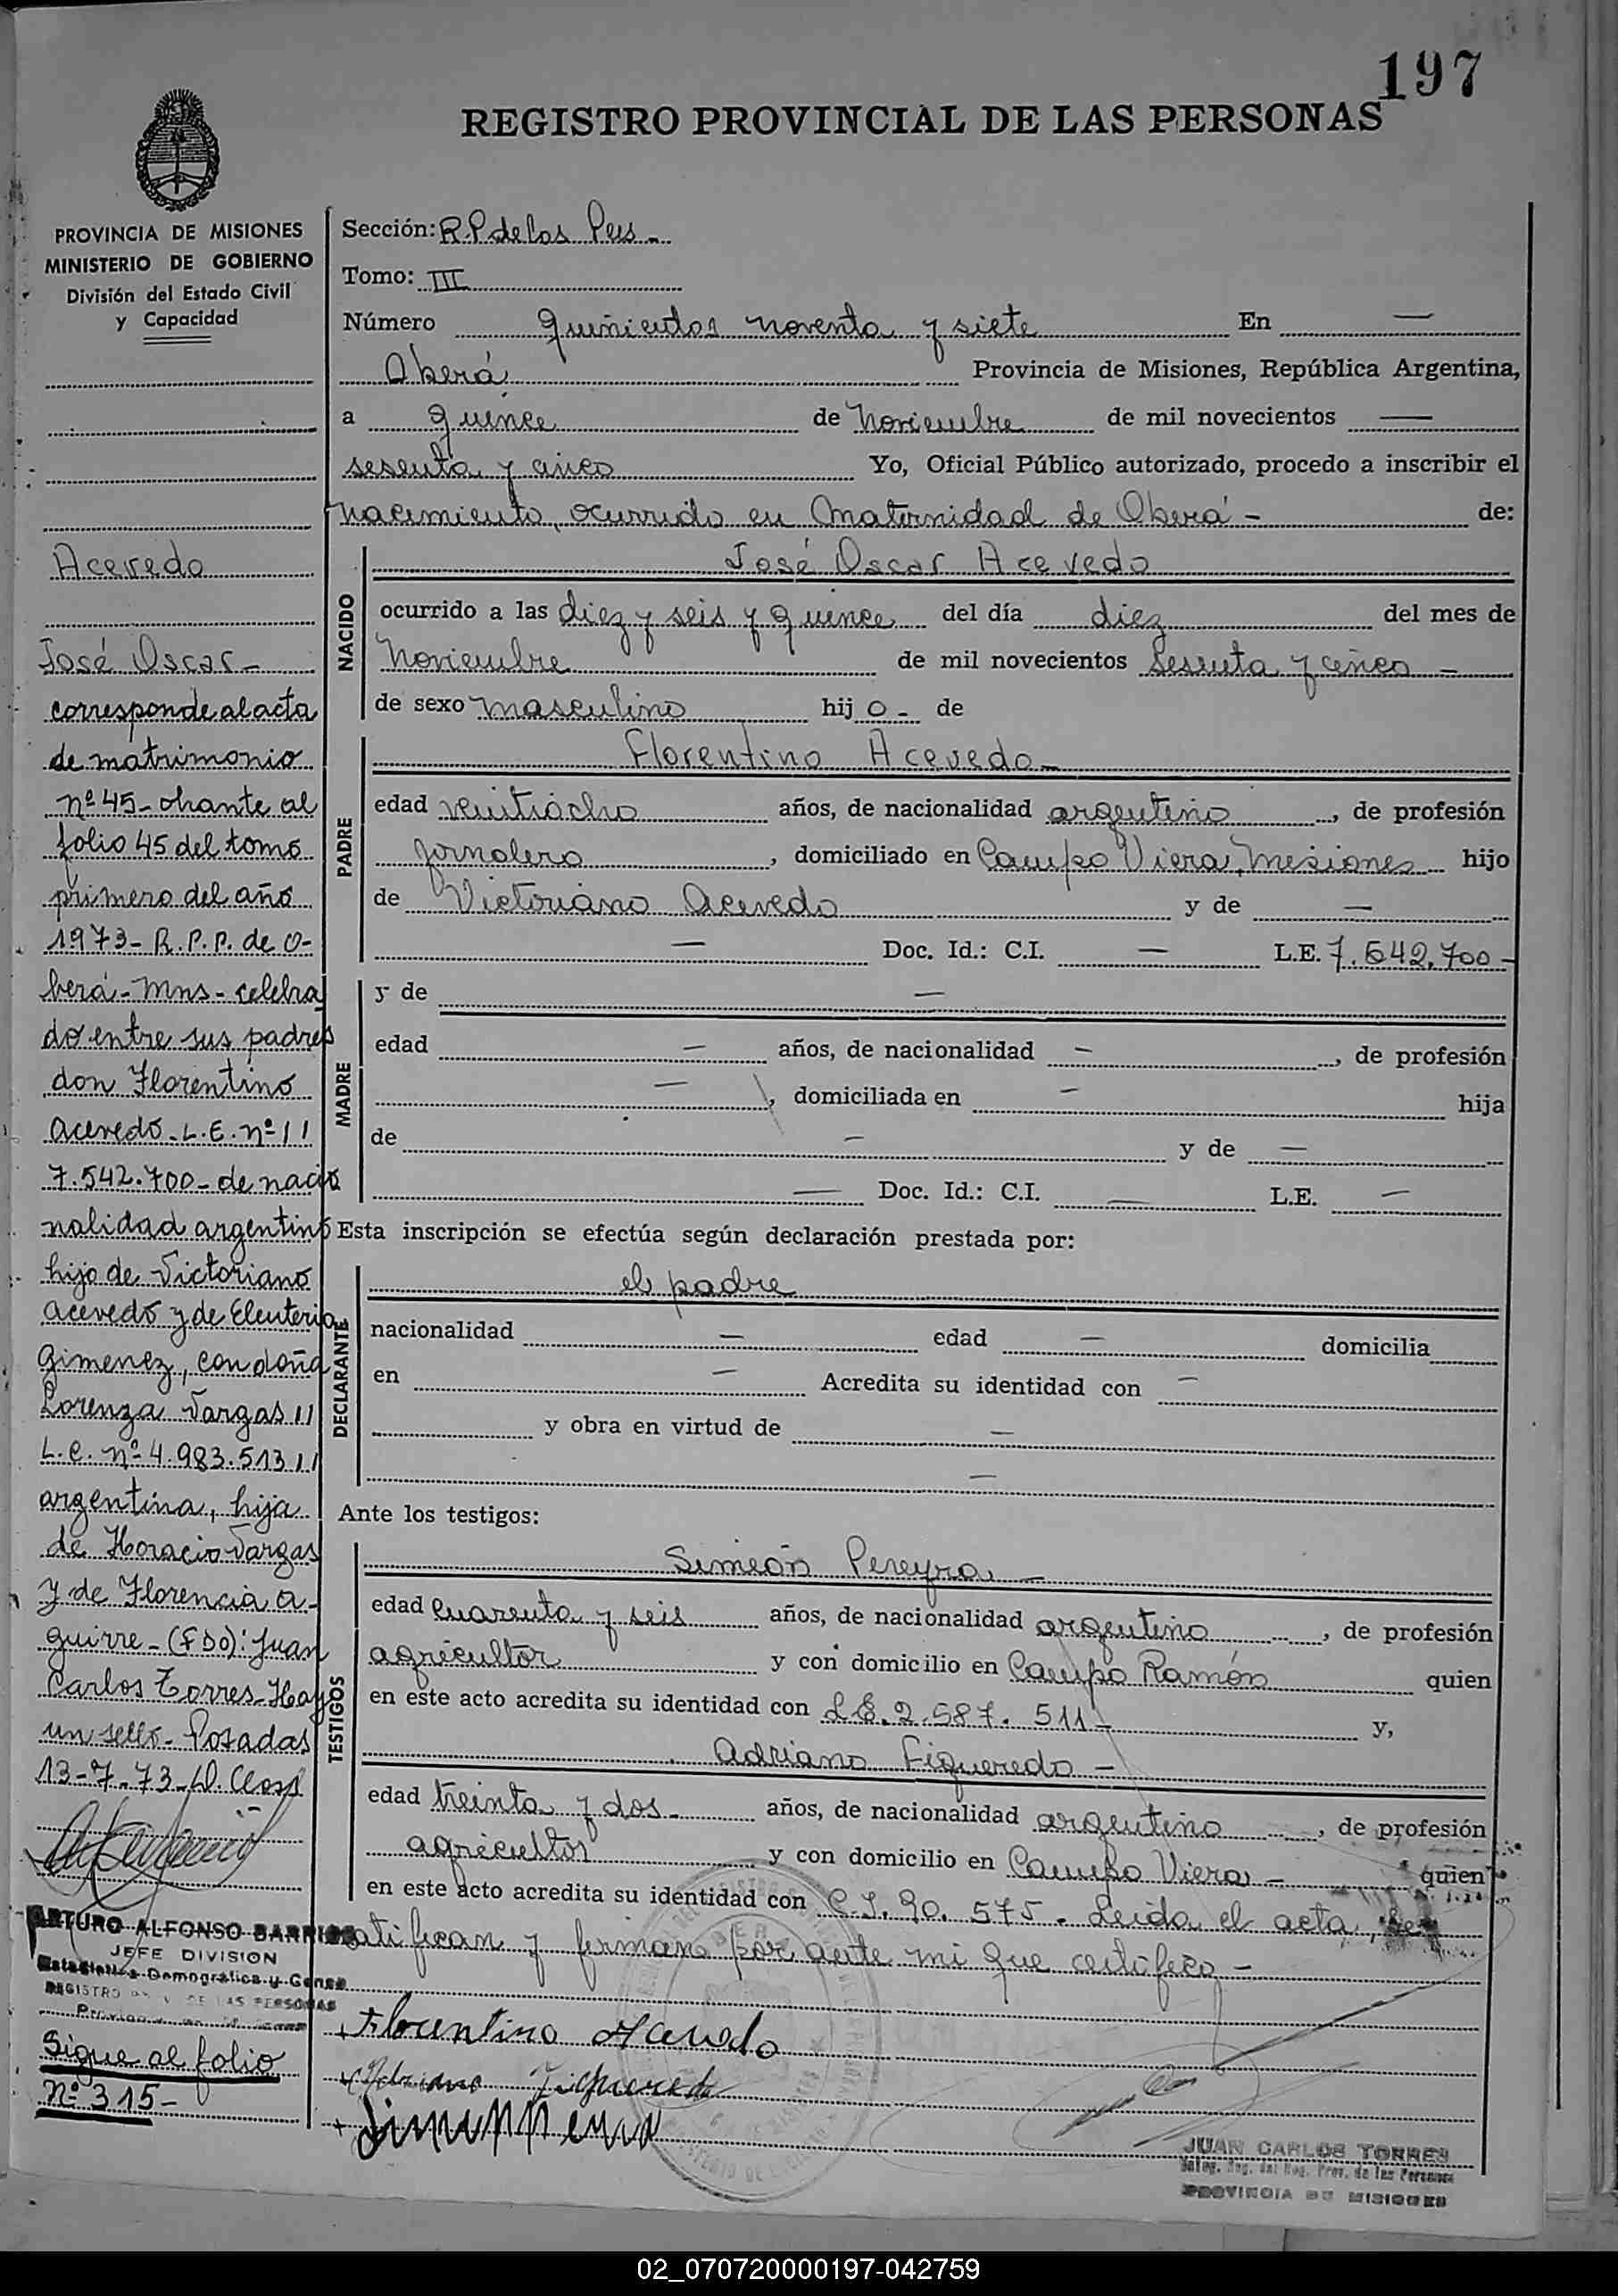 197
REGISTRO PROVINCIAL DE LAS PERSONAS
PROVINCIA DE MISIONES
MINISTERIO DE GOBIERNO
División del Estado Civil
y Capacidad
Acevedo
José Oscar -
corresponde al acta
de matrimonio
nº 45 - obrante al
folio 45 del tomo
primero del año
1973 - R.P.P. de O-
berá - Mns - celebra
do entre sus padres
don Florentino
Acevedo - L.E. nº //
7.542.700 - de nacio
nalidad argentino
hijo de Victoriano
Acevedo y de Eleuteria
Gimenez, con doña
Lorenza Vargas //
L.C. nº 4.983.513 //
argentina, hija
de Horacio Vargas
y de Florencia A-
guirre - (FDO): Juan
Carlos Torres - Hay
un sello - Posadas
13-7-73 -
ARTURO ALFONSO BARRIOS
JEFE DIVISION
Estadística Demográfica y Censo
REGISTRO DE LAS PERSONAS
Sigue al folio
Nº 315 -
Sección: R.P. de las Pers -
Tomo: III
Número quinientos noventa y siete En —
Oberá Provincia de Misiones, República Argentina,
a quince de Noviembre de mil novecientos —
sesenta y cinco Yo, Oficial Público autorizado, procedo a inscribir el
nacimiento, ocurrido en Maternidad de Oberá - de:
NACIDO
José Oscar Acevedo
ocurrido a las diez y seis y quince del día diez del mes de
Noviembre de mil novecientos sesenta y cinco -
de sexo masculino hij o - de
PADRE
Florentino Acevedo -
edad veintiocho años, de nacionalidad argentino, de profesión
jornalero, domiciliado en Campo Viera, Misiones hijo
de Victoriano Acevedo y de —
— Doc. Id.: C.I. — L.E. 7.542.700 -
MADRE
y de —
edad — años, de nacionalidad —, de profesión
—, domiciliada en — hija
de — y de —
— Doc. Id.: C.I. — L.E. —
Esta inscripción se efectúa según declaración prestada por:
DECLARANTE
el padre
nacionalidad — edad — domicilia
en — Acredita su identidad con —
y obra en virtud de —
—
Ante los testigos:
TESTIGOS
Simeón Pereyra -
edad cuarenta y seis años, de nacionalidad argentino, de profesión
agricultor y con domicilio en Campo Ramón quien
en este acto acredita su identidad con L.E. 2.587.511 - y,
Adriano Figueredo -
edad treinta y dos - años, de nacionalidad argentino, de profesión
agricultor y con domicilio en Campo Viera - quien
en este acto acredita su identidad con C.I. 90.575 - Leída el acta, la
ratifican y firman por ante mi que certifico -
Florentino Acevedo
Adriano Figueredo
JUAN CARLOS TORRES
Deleg. Reg. del Reg. Prov. de las Personas
PROVINCIA DE MISIONES
02_070720000197-042759